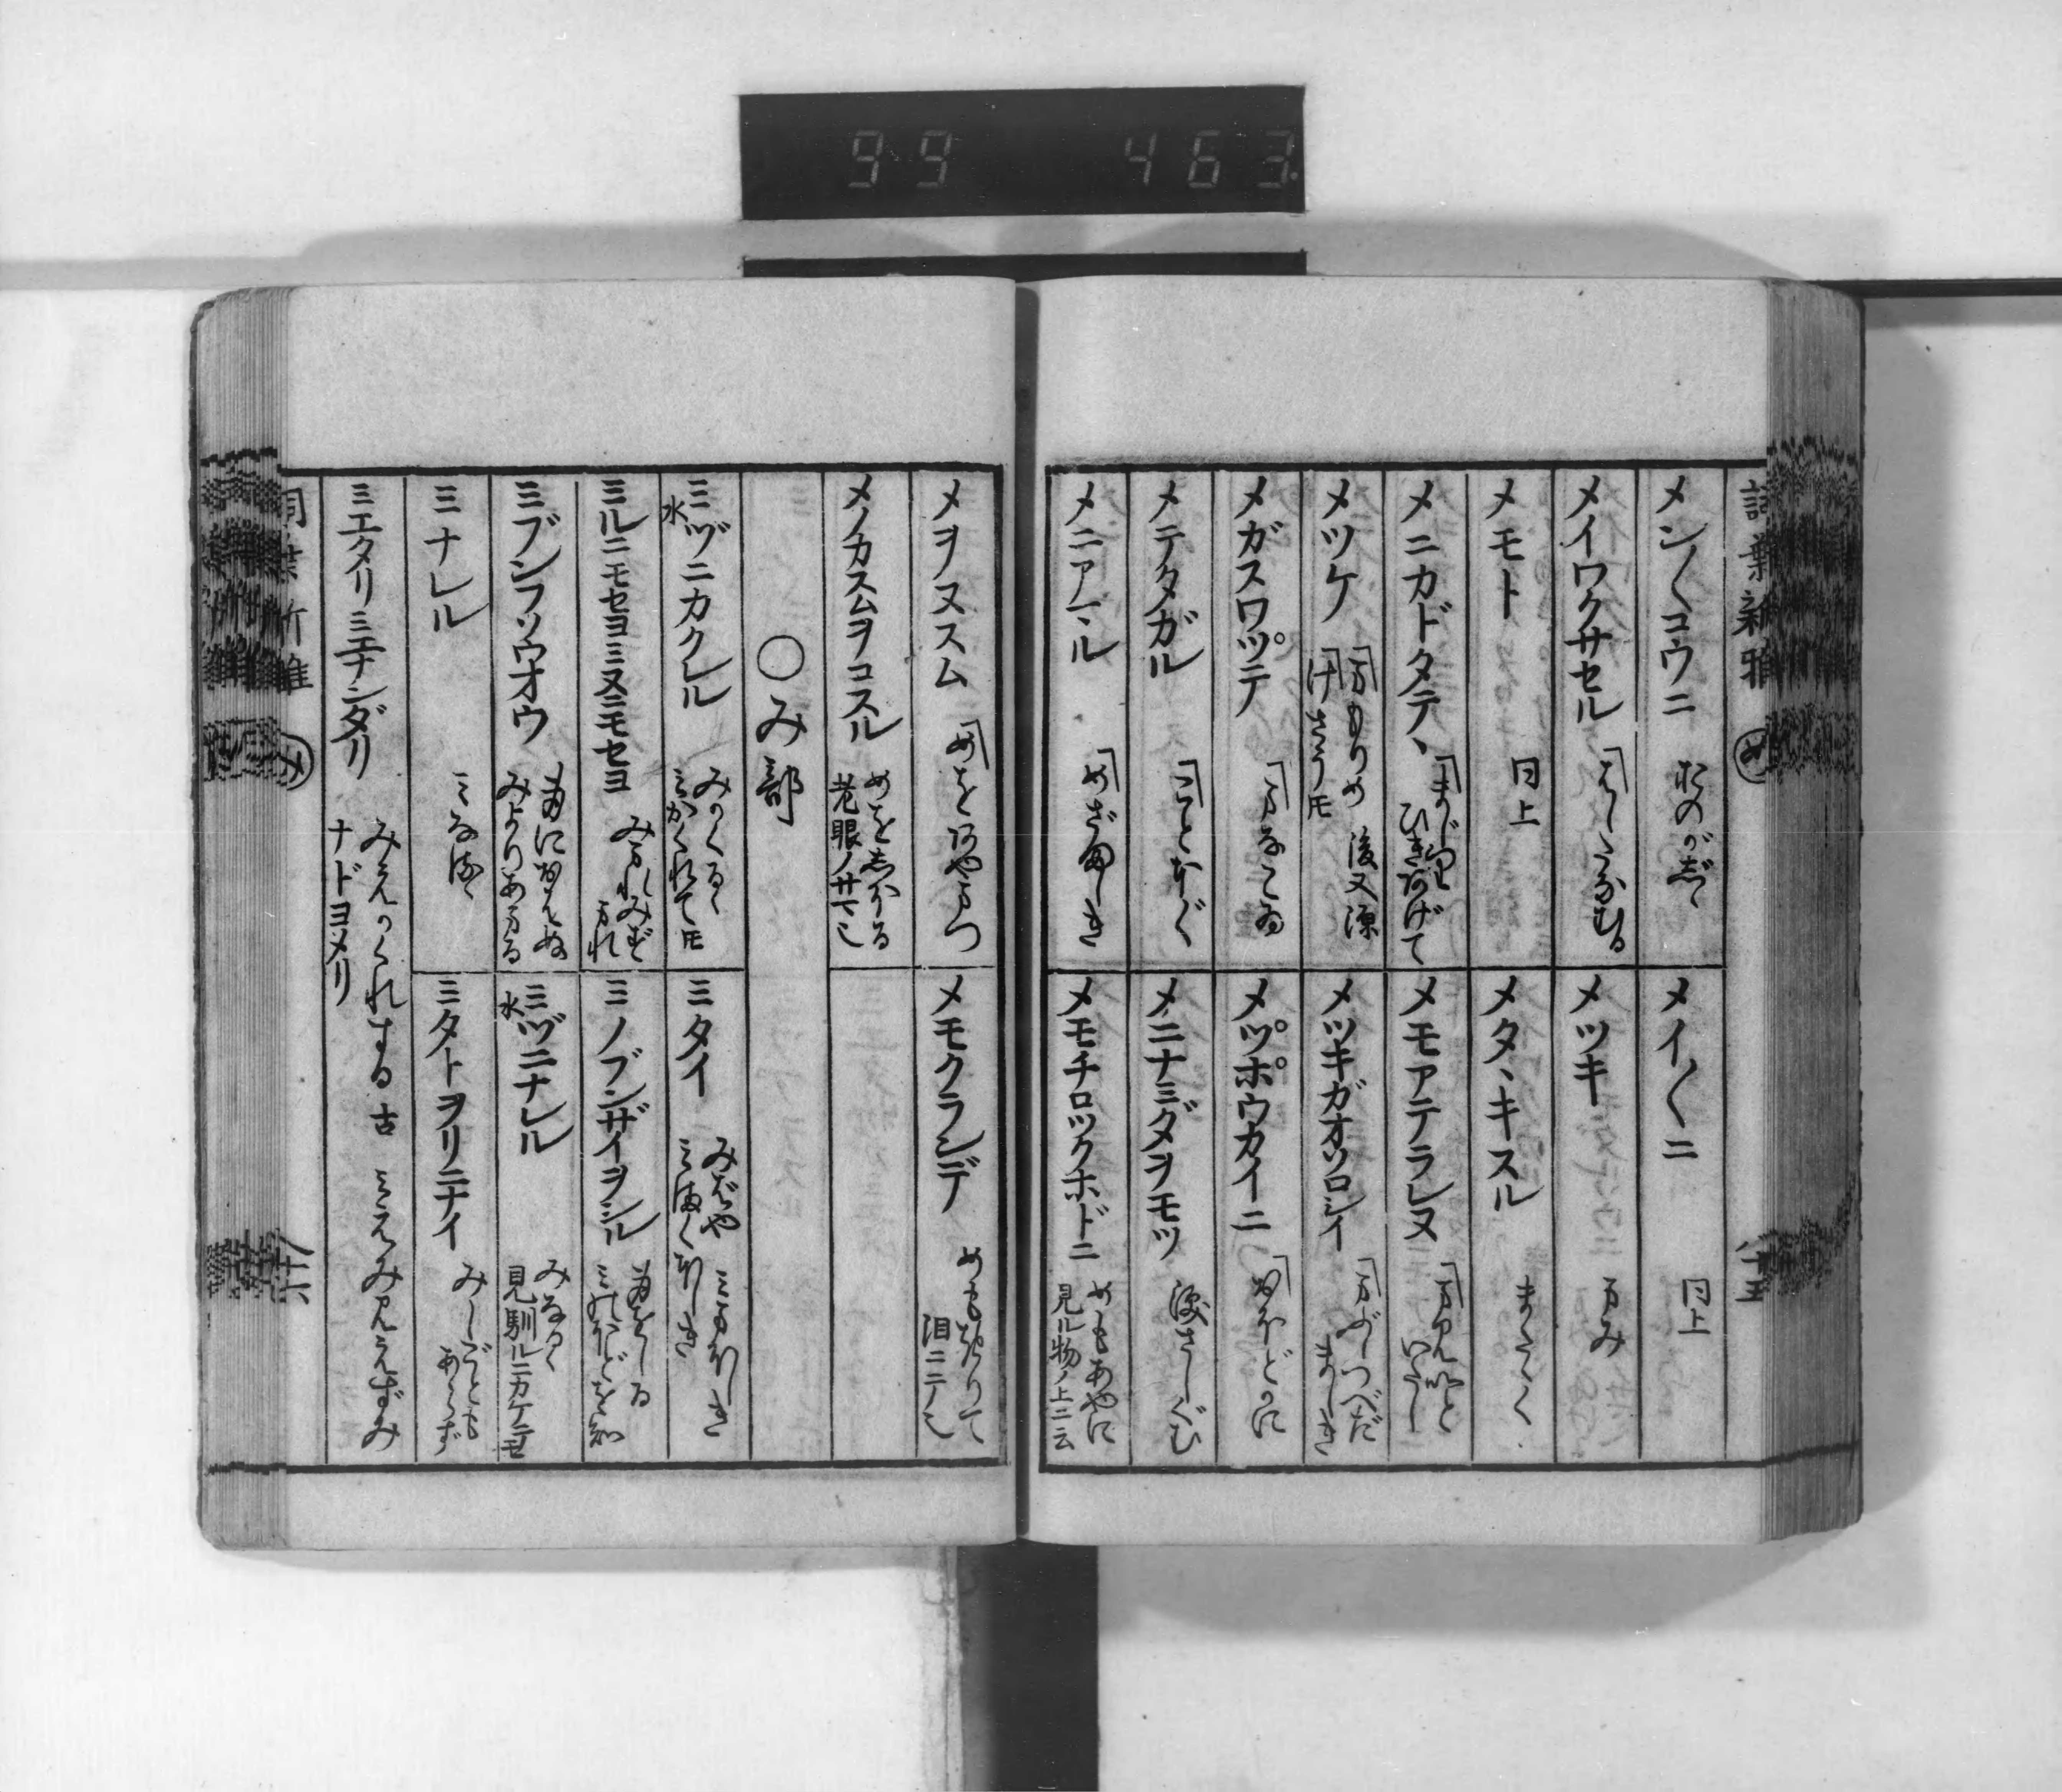 99 463
詞葉新雅 め 八十五
メン〱コウニ おのがじゝ
メイワクサセル はしたなむる
メモト 同上
メニカドタテヽ まじりひきあげて
メツケ まもりめ 後又源 けさう𪜈
メガスワッテ まなこゐ
メテタガル ことほぐ
メニアマル めざましき
メイ〱ニ 同上
メツキ まみ
メタヽキスル またゝく
メモアテラレヌ
メツキガオソロシイ まぶしつべたましき
メッポウカイニ おほどかに
メニナミダヲモツ 涙さしぐむ
メモチロツクホドニ めもあやに 見ル物ノ上ニ云
メヲヌスム めをあやまつ
メノカスムヲコスル めをしぼる 老眼ノサマ也
メモクランデ めもきりて 泪ニ云也
○み部
ミヅニカクレル 水 みかくるゝ ミがくれて𪜈
ミルニモセヨミヌニモセヨ みまれみずまれ
ミブンフソウオウ 身におはぬ みよりあまる
ミナレル ミなるゝ
ミタイ みばや ミまくほしき ミまほしき
ミノブンザイヲシル 身をしる ミのほどを知
ミヅニナレル 水 みなるゝ 見馴ルニカケテモ
ミタトヲリニナイ みしごともあらず
ミエタリミエナンダリ みえかくれする 古 ミえみみえずみ ナドヨメリ
詞葉新雅 み 八十六